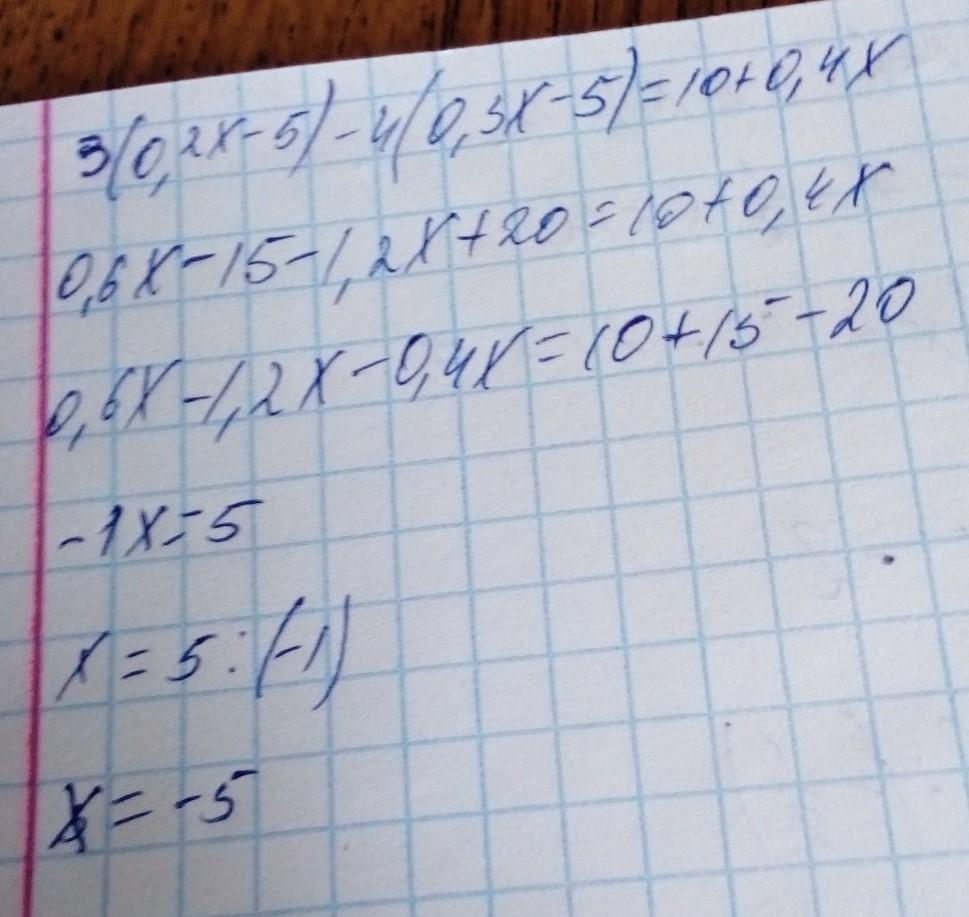 3(0,2x-5)-4(0,3x-5)=10+0,4x
0,6x-15-1,2x+20=10+0,4x
0,6x-1,2x-0,4x=10+15-20
-1x=5
x=5:(-1)
x=-5